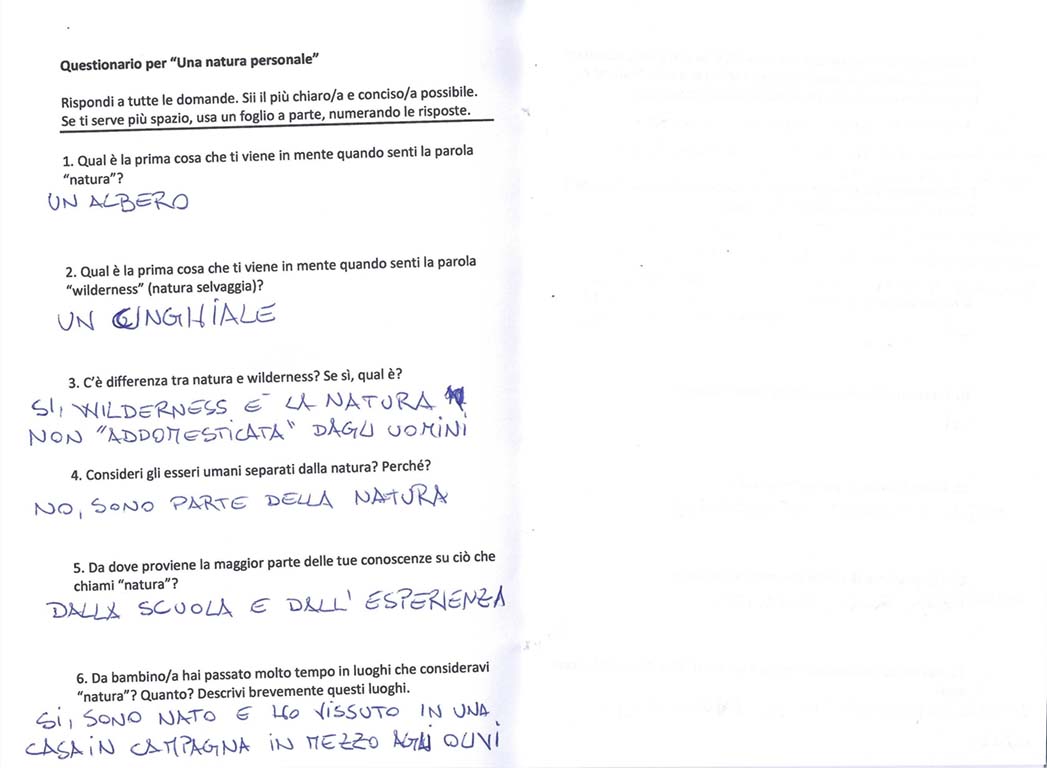 Questionario per “Una natura personale”
Rispondi a tutte le domande. Sii il più chiaro/a e conciso/a possibile.
Se ti serve più spazio, usa un foglio a parte, numerando le risposte.
1. Qual è la prima cosa che ti viene in mente quando senti la parola
“natura”?
UN ALBERO
2. Qual è la prima cosa che ti viene in mente quando senti la parola
“wilderness” (natura selvaggia)?
UN CINGHIALE
3. C’è differenza tra natura e wilderness? Se sì, qual è?
SI, WILDERNESS E' LA NATURA
NON "ADDOMESTICATA" DAGLI UOMINI
4. Consideri gli esseri umani separati dalla natura? Perché?
NO, SONO PARTE DELLA NATURA
5. Da dove proviene la maggior parte delle tue conoscenze su ciò che
chiami “natura”?
DALLA SCUOLA E DALL' ESPERIENZA
6. Da bambino/a hai passato molto tempo in luoghi che consideravi
“natura”? Quanto? Descrivi brevemente questi luoghi.
SI, SONO NATO E HO VISSUTO IN UNA
CASA IN CAMPAGNA IN MEZZO AGLI OLIVI